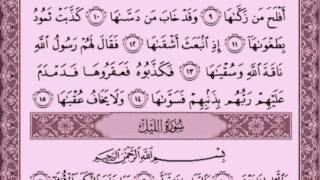 أَفْلَحَ مَن زَكَّىٰهَا ٩ وَقَدْ خَابَ مَن دَسَّىٰهَا ١٠ كَذَّبَتْ ثَمُودُ
بِطَغْوَىٰهَآ ١١ إِذِ ٱنۢبَعَثَ أَشْقَىٰهَا ١٢ فَقَالَ لَهُمْ رَسُولُ ٱللَّهِ
نَاقَةَ ٱللَّهِ وَسُقْيَٰهَا ١٣ فَكَذَّبُوهُ فَعَقَرُوهَا فَدَمْدَمَ
عَلَيْهِمْ رَبُّهُم بِذَنۢبِهِمْ فَسَوَّىٰهَا ١٤ وَلَا يَخَافُ عُقْبَٰهَا ١٥
سُورَةُ اللَّيْلِ
بِسْمِ ٱللَّهِ ٱلرَّحْمَٰنِ ٱلرَّحِيمِ